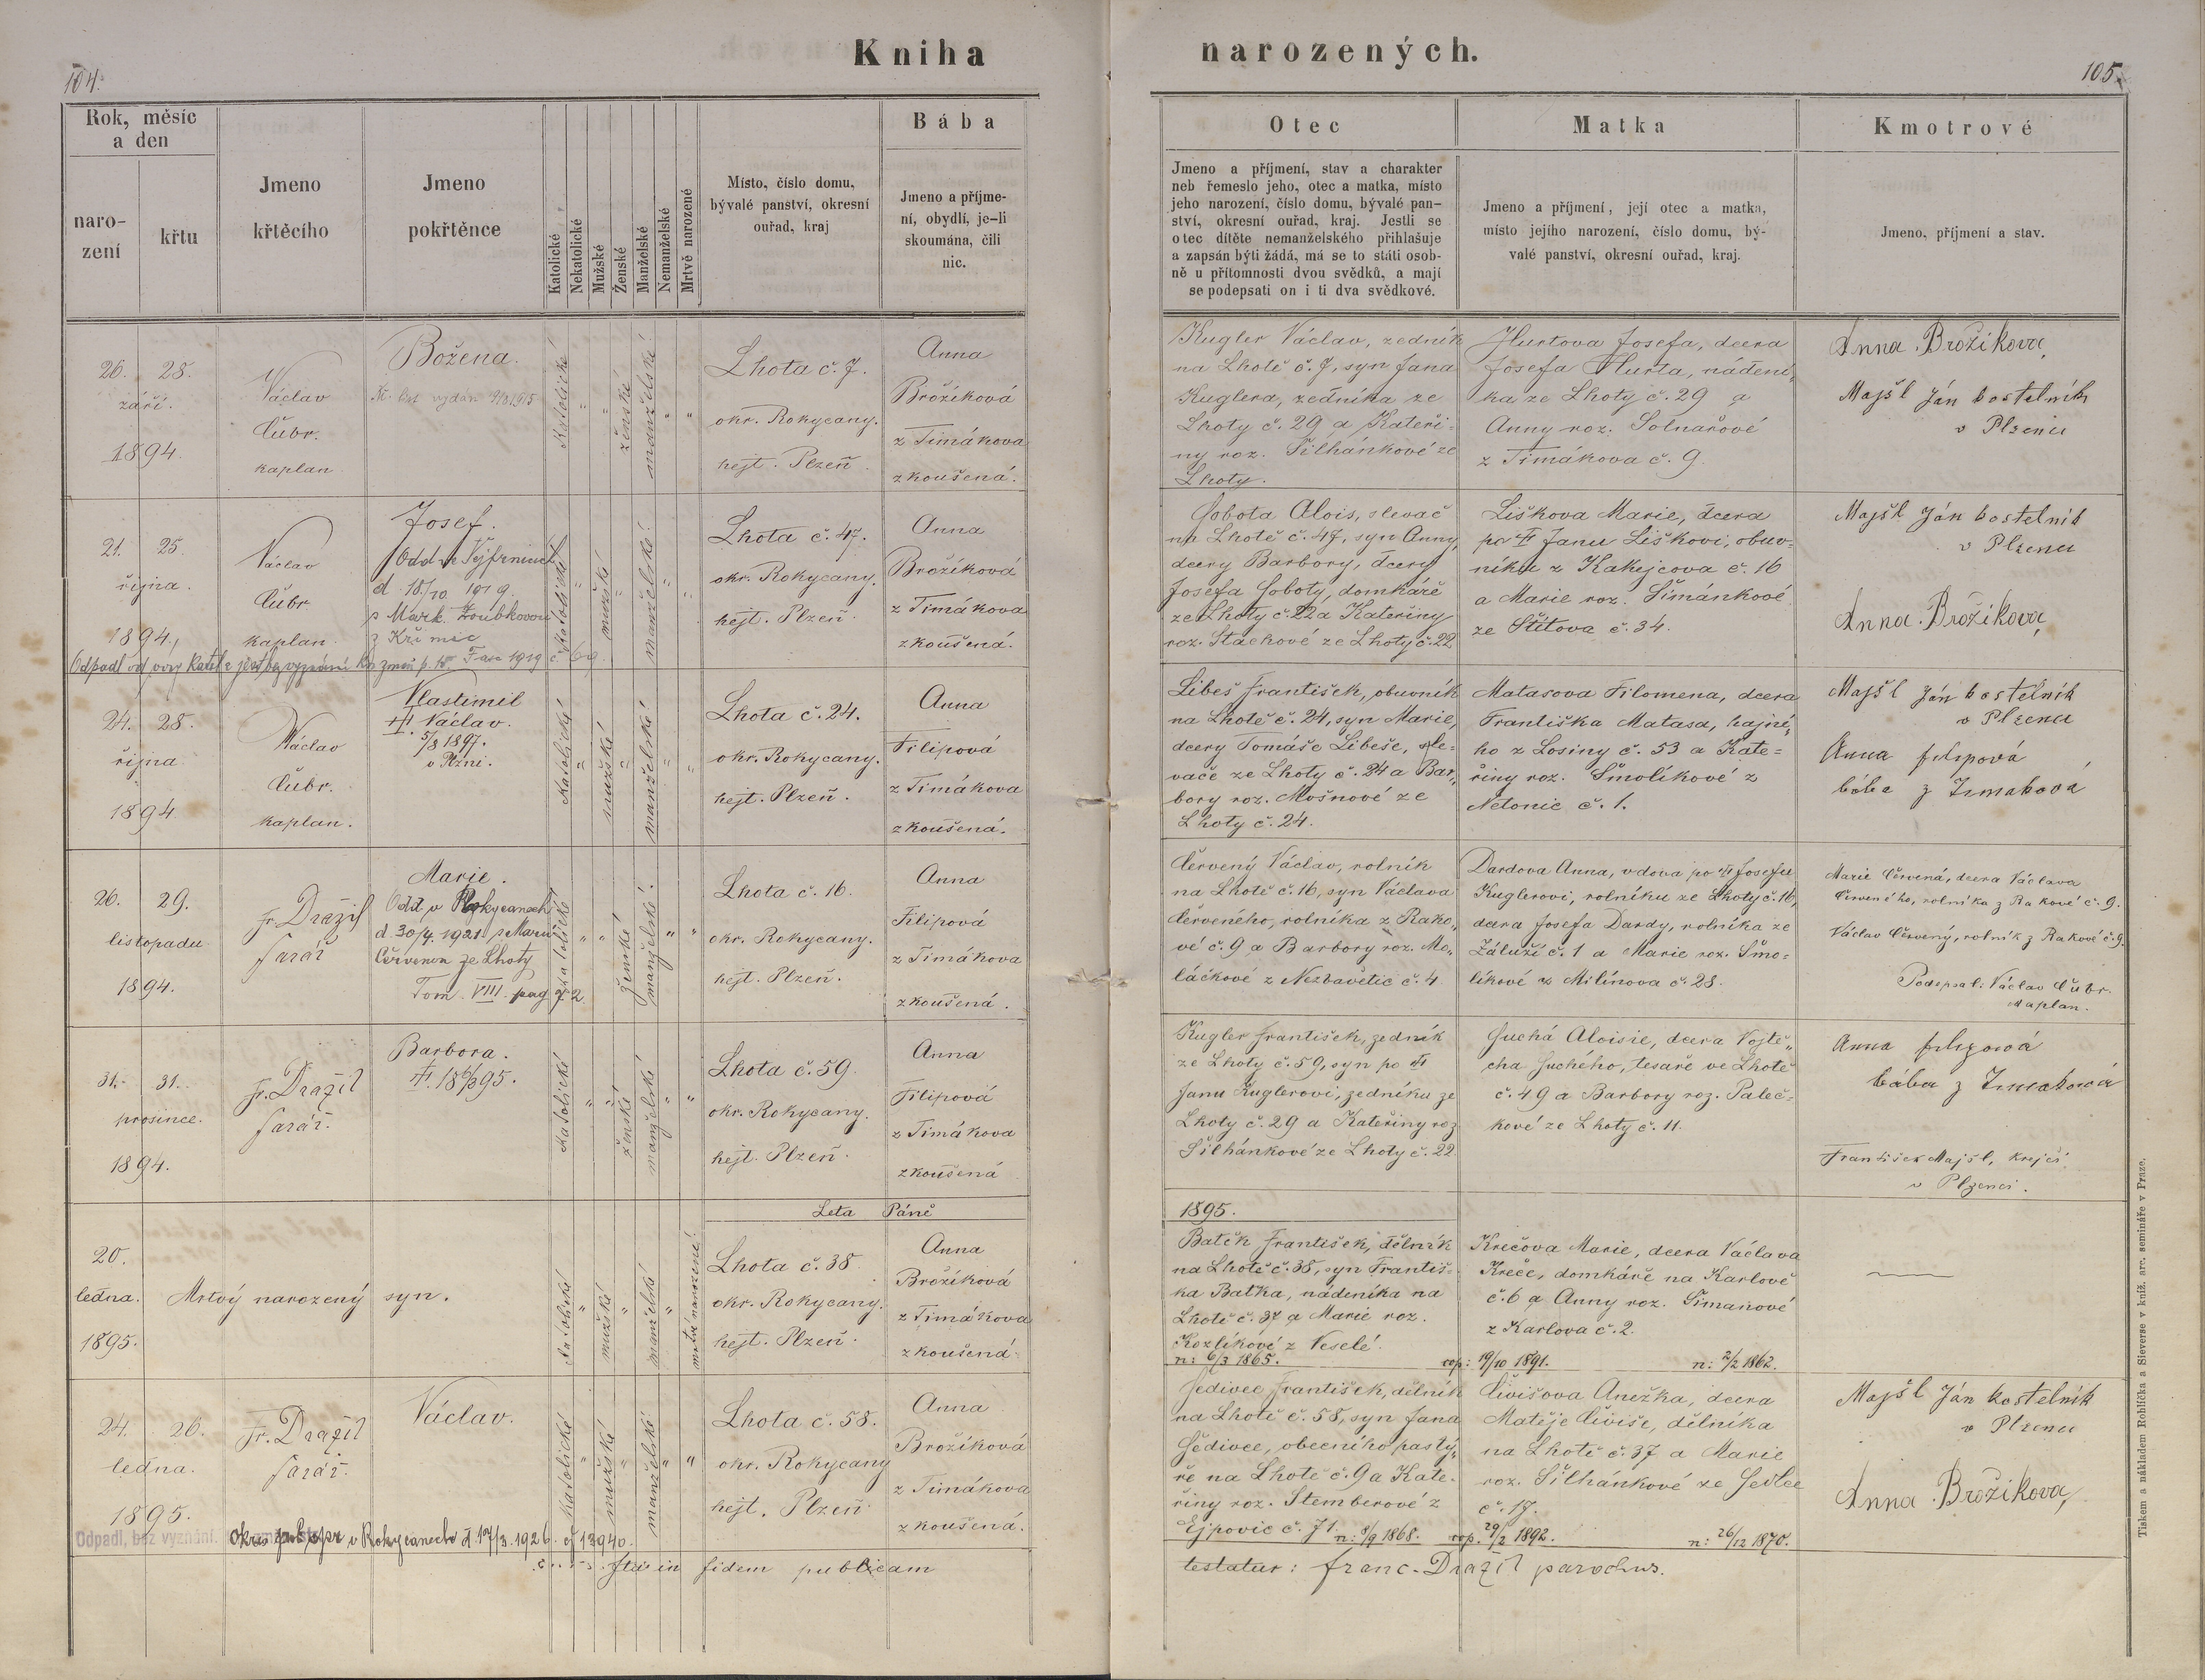 104.
Kniha narozených.
105.
Rok, měsíc
a den
naro-
zení
křtu
Jmeno
křtěcího
Jmeno
pokřtěnce
Katolické
Nekatolické
Mužské
Ženské
Manželské
Nemanželské
Mrtvě narozené
Místo, číslo domu,
bývalé panství, okresní
ouřad, kraj
Bába
Jmeno a příjme-
ní, obydlí, je-li
skoumána, čili
nic.
Otec
Jmeno a příjmení, stav a charakter
neb řemeslo jeho, otec a matka, místo
jeho narození, číslo domu, bývalé pan-
ství, okresní ouřad, kraj. Jestli se
otec dítěte nemanželského přihlašuje
a zapsán býti žádá, má se to státi osob-
ně u přítomnosti dvou svědků, a mají
se podepsati on i ti dva svědkové.
Matka
Jmeno a příjmení, její otec a matka,
místo jejího narození, číslo domu, bý-
valé panství, okresní ouřad, kraj.
Kmotrové
Jmeno, příjmení a stav.
26. 28.
září.
1894.
Václav
Čubr.
kaplan
Božena.
vydán
Katolické
" "
ženské
manželské!
" "
Lhota č. 7.
okr. Rokycany.
hejt. Plzeň.
Anna
Brožíková
z Timákova
zkoušená.
Kugler Václav, zedník
na Lhotě č. 7, syn Jana
Kuglera, zedníka ze
Lhoty č. 29 a Kateři-
ny roz. Šilhánkové ze
Lhoty.
Hurtova Josefa, dcera
Josefa Hurta, nádení-
ka ze Lhoty č. 29 a
Anny roz. Solnařové
z Timákova č. 9.
Anna Brožikova,
Majšl Ján kostelník
v Plzenci
21. 25.
října.
1894,
Václav
Čubr
kaplan.
Josef.
d 18/10 1919.
s Mark. Zoubkovou
Odpadl od
1919 č 69.
Katolické
"
mužské
"
manželské!
" "
Lhota č. 47.
okr. Rokycany.
hejt. Plzeň.
Anna
Brožíková
z Timákova
zkoušená.
Sobota Alois, slevač
na Lhotě č. 47, syn Anny,
dcery Barbory, dcery
Josefa Soboty, domkáře
ze Lhoty č. 22 a Kateřiny
roz. Stachové ze Lhoty č. 22
Liškova Marie, dcera
po † Janu Liškovi, obuv-
níku z Kakejcova č. 16
a Marie roz. Šimánkové
ze Štítova č. 34.
Majšl Ján kostelník
v Plzenci
Anna Brožikova,
24. 28.
října
1894
Václav
Čubr.
kaplan.
Vlastimil
† Václav.
5/8 1897.
v Plzni.
Katolické
"
mužské
"
manželské!
" "
Lhota č. 24.
okr. Rokycany.
hejt. Plzeň.
Anna
Filipová
z Timákova
zkoušená.
Libeš František, obuvník
na Lhotě č. 24, syn Marie,
dcery Tomáše Libeše, sle-
vače ze Lhoty č. 24 a Bar-
bory roz. Mošnové ze
Lhoty č. 24.
Matasova Filomena, dcera
Františka Matasa, hajné-
ho z Losiny č. 53 a Kate=
řiny roz. Smolíkové z
Netonic č. 1.
Majšl Ján kostelník
v Plzenci
Anna filipová
bába z Timakova
26. 29.
listopadu
1894.
Fr. Dražil
farář
Marie.
Odd. v Rokycanech
d 30/4. 1921
ze Lhoty
Tom. VIII. pag 72.
Katolické
" "
ženské
manželské!
" "
Lhota č. 16.
okr. Rokycany.
hejt. Plzeň.
Anna
Filipová
z Timákova
zkoušená.
Červený Václav, rolník
na Lhotě č. 16, syn Václava
Červeného, rolníka z Rako-
vé č. 9 a Barbory roz. Mo-
láčkové z Nezbavětic č. 4
Dardova Anna, vdova po † Josefu
Kuglerovi, rolníku ze Lhoty č. 16,
dcera Josefa Dardy, rolníka ze
Záluží č. 1 a Marie roz. Smo-
líkové z Milínova č. 28.
Marie Červená, dcera Václava
Červeného, rolníka z Rakové č. 9.
Václav Červený, rolník z Rakové č. 9
Podepsal: Václav Čubr.
kaplan.
31. 31.
prosince.
1894.
Fr. Dražil
farář.
Barbora.
Katolické
" "
ženské
manželské
" "
Lhota č. 59.
okr. Rokycany.
hejt. Plzeň.
Anna
Filipová
z Timákova
zkoušená
Kugler František, zedník
ze Lhoty č. 59, syn po †
Janu Kuglerovi, zedníku ze
Lhoty č. 29 a Kateřiny roz
Šilhánkové ze Lhoty č. 22
Suchá Aloisie, dcera Vojtě-
cha Suchého, tesaře ve Lhotě
č. 49 a Barbory roz. Paleč-
kové ze Lhoty č. 11.
Anna filipová
bába z Timakova
František Majšl, krejčí
v Plzenci.
Leta Páně
1895.
20.
ledna.
1895.
Mrtvý narozený syn.
Katolické
"
mužské
"
manželské
"
mrtvé narozené!
Lhota č. 38
okr. Rokycany.
hejt. Plzeň.
Anna
Brožíková
z Timákova
zkoušená
Batěk František, dělník
na Lhotě č. 38, syn Františ-
ka Baťka, nádeníka na
Lhotě č. 37 a Marie roz.
Kozlíkové z Veselé.
n: 6/3 1865.
cop: 19/10 1891.
Krečova Marie, dcera Václava
Kreče, domkáře na Karlově
č. 6 a Anny roz. Šimanové
z Karlova č. 2.
n: 2/2 1862.
24. 26.
ledna.
1895.
Fr. Dražil
farář.
Václav.
Katolické
"
mužské
"
manželské
" "
Lhota č. 58.
okr. Rokycany
hejt. Plzeň
Anna
Brožíková
z Timákova
zkoušená.
Odpadl, bez vyznání.
v Rokycanech d. 19/3. 1926 č 13940.
Šedivec František, dělník
na Lhotě č. 58, syn Jana
Šedivce, obecního pastý-
ře na Lhotě č. 9 a Kate-
řiny roz. Štemberové z
Ejpovic č. 71.
n: 8/9 1868.
cop. 29/2 1892.
Čivišova Anežka, dcera
Matěje Čiviše, dělníka
na Lhotě č. 37 a Marie
roz. Šilhánkové ze Sedlce
č. 17.
n: 26/12 1870.
Majšl Ján kostelník
v Plzenci
Anna Brožikova,
Ita in fidem publicam
testatur: Franc. Dražil parochus.
Tiskem a nákladem Rohlíčka a Sieverse v kníž. arc. semináře v Praze.